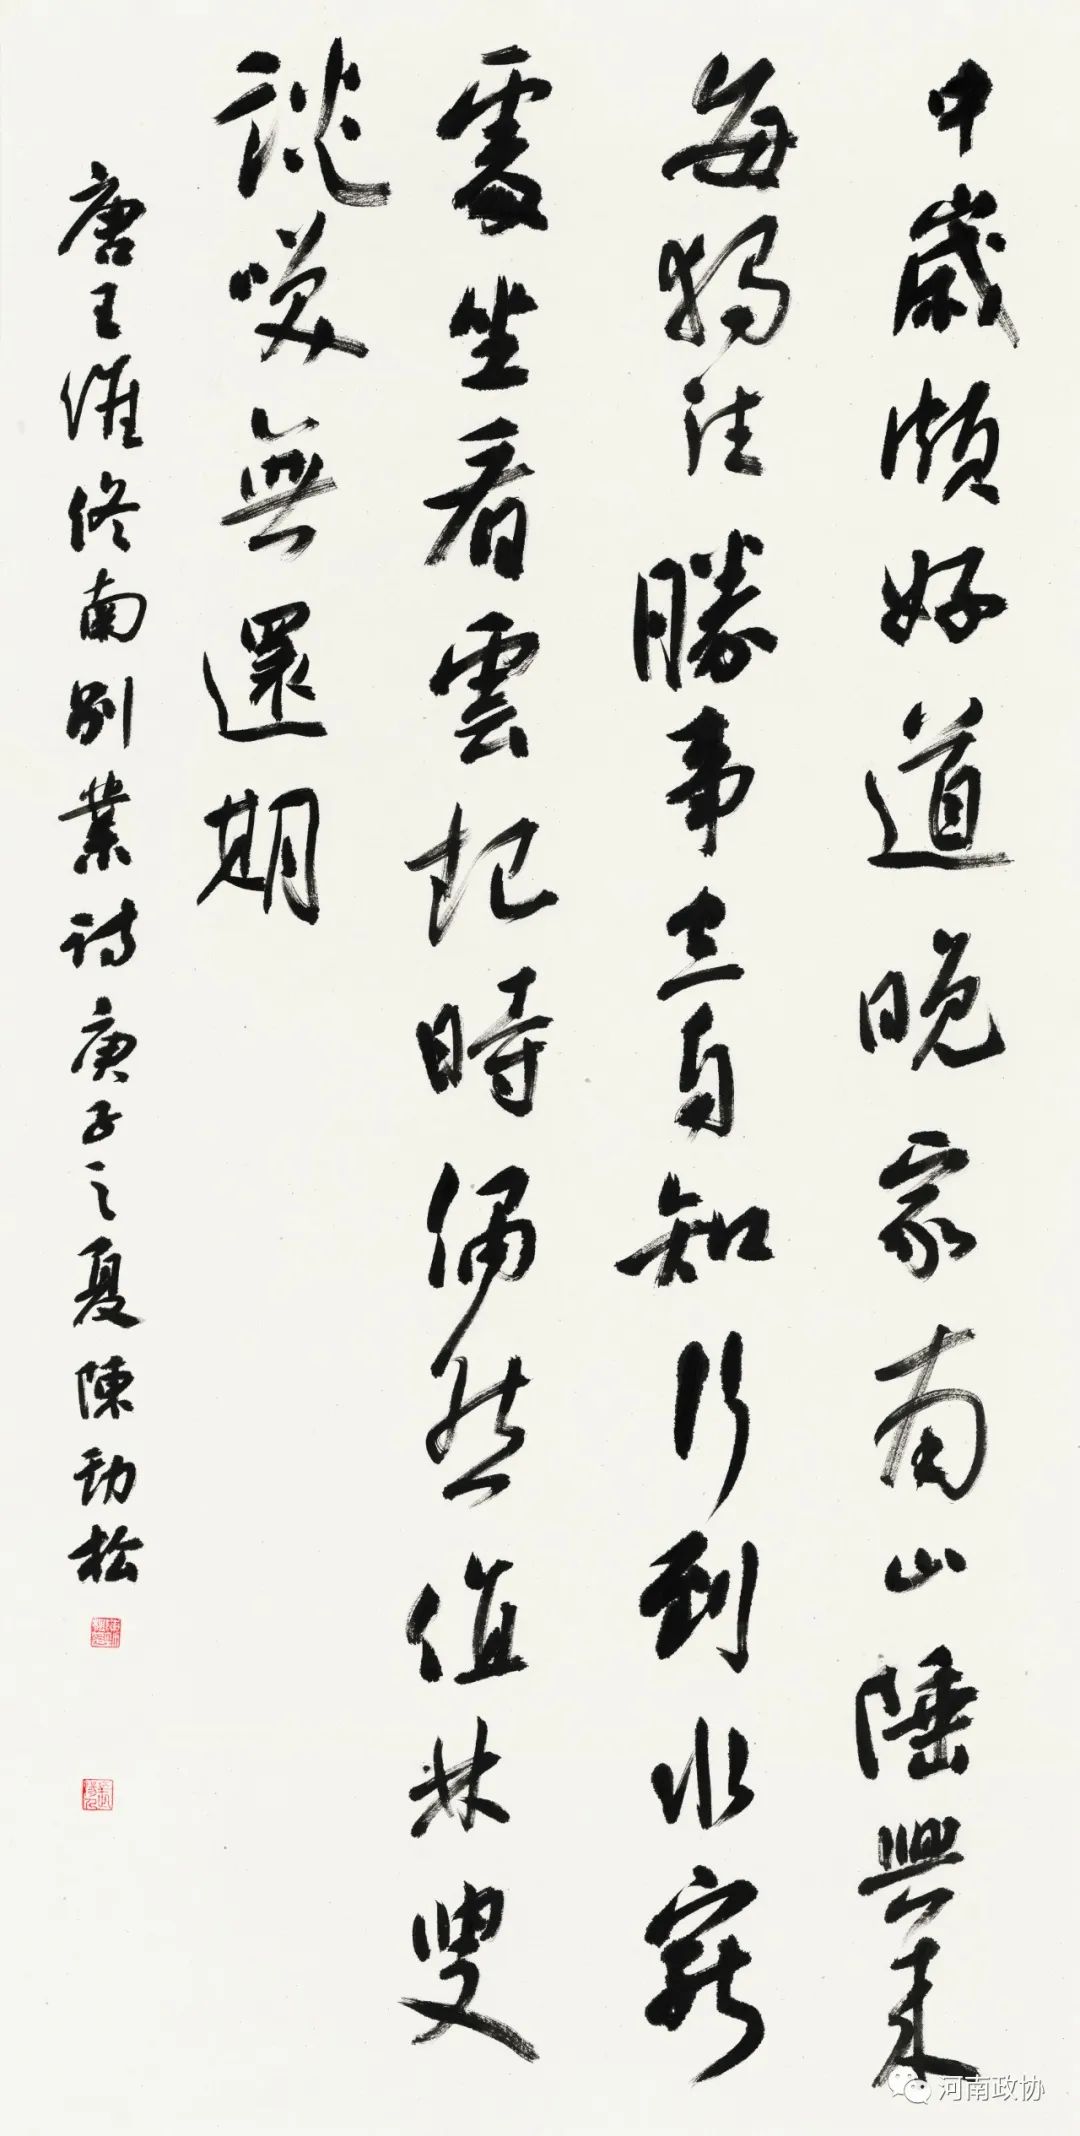 中歲頗好道晚家南山陲興來
每獨往勝事空自知行到水窮
處坐看雲起時偶然值林叟
談笑無還期
唐王維終南別業詩庚子之夏陳勁松
河南政协